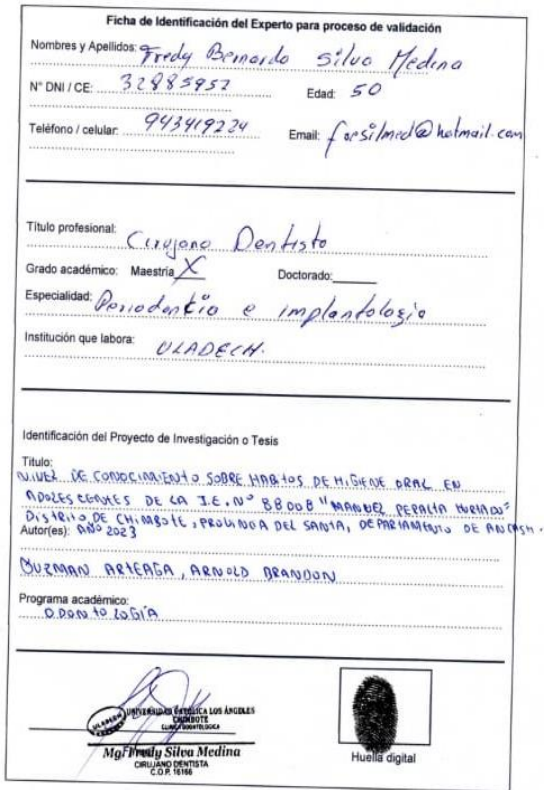 Ficha de Identificación del Experto para proceso de validación
Nombres y Apellidos: Fredy Bernardo Silva Medina
N° DNI / CE: 32985952 Edad: 50
Teléfono / celular: 943419224 Email: forsilmed@hotmail.com
Título profesional: Cirujano Dentista
Grado académico: Maestría X Doctorado:
Especialidad: Periodontia e implantologia
Institución que labora: ULADECH.
Identificación del Proyecto de Investigación o Tesis
Titulo:
NIVEL DE CONOCIMIENTO SOBRE HABITOS DE HIGIENE ORAL EN
ADOLESCENTES DE LA I.E. N° 88008 "MANUEL PERALTA HURTADO"
DISTRITO DE CHIMBOTE, PROVINCIA DEL SANTA, DEPARTAMENTO DE ANCASH.
Autor(es): AÑO 2023
GUZMAN ARTEAGA, ARNOLD BRANDON
Programa académico:
ODONTOLOGÍA
ULADECH
UNIVERSIDAD CATÓLICA LOS ÁNGELES
CHIMBOTE
CLINICA ODONTOLOGICA
Mg. Fredy Silva Medina
CIRUJANO DENTISTA
C.O.P. 16166
Huella digital